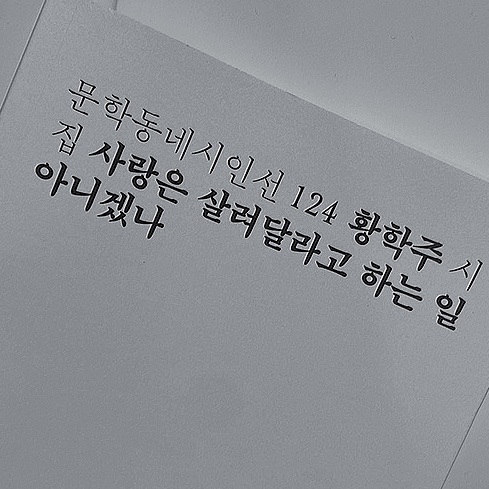 문학동네시인선 124 황학주 시
집 사랑은 살려달라고 하는 일
아니겠나